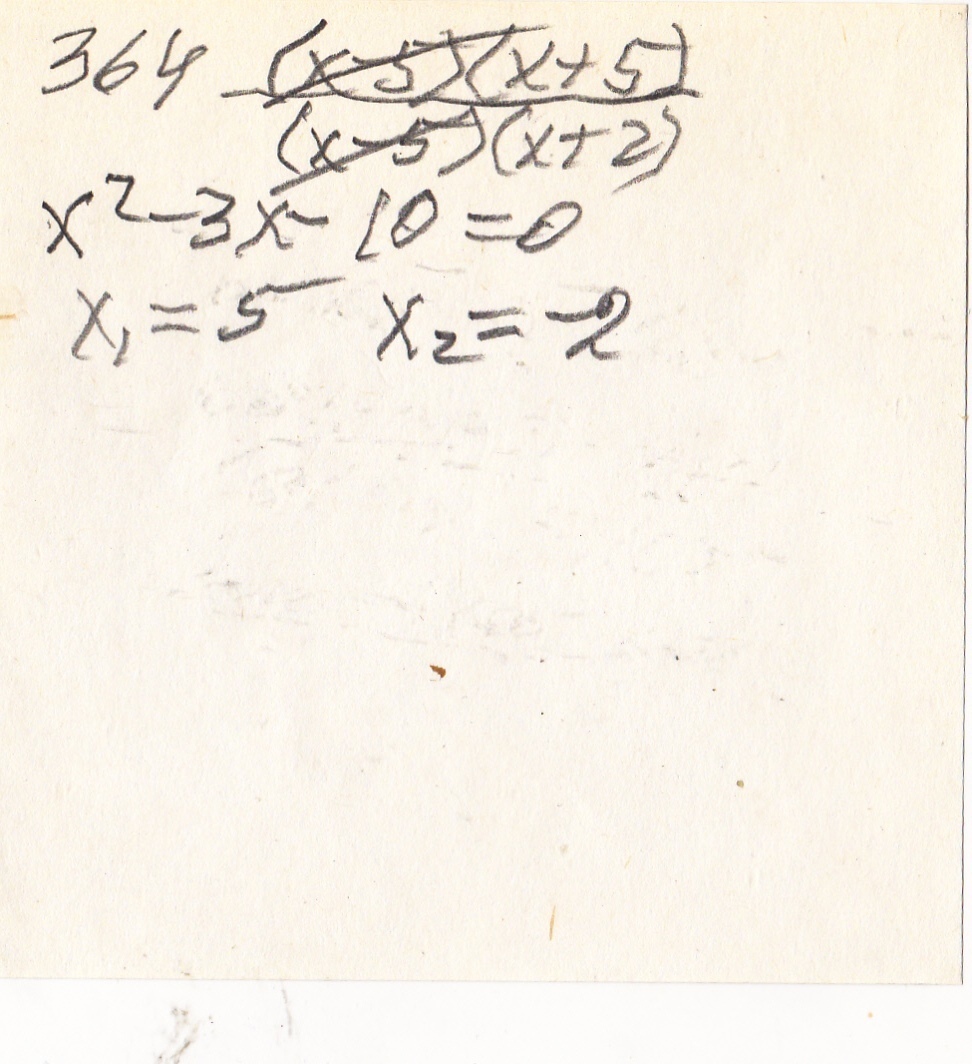 364 (x-5)(x+5)
(x-5)(x+2)
x²-3x-10=0
x₁=5 x₂=-2